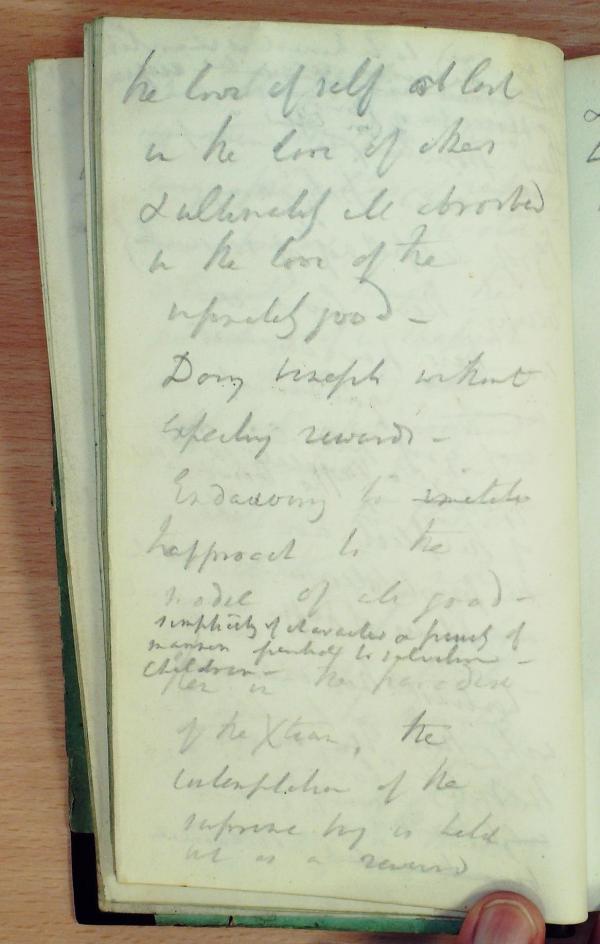 the love of self lost
in the love of others
& ultimately all absorbed
in the love of the
infinitely good –
Doing benefits without
expecting rewards –
Endeavoring to imitate
to approach to the
model of all good –
simplicity of character & of
manner to salvation –
children –
in the paradise
of the Xtian, the
contemplation of the
supreme being is held
out as a reward